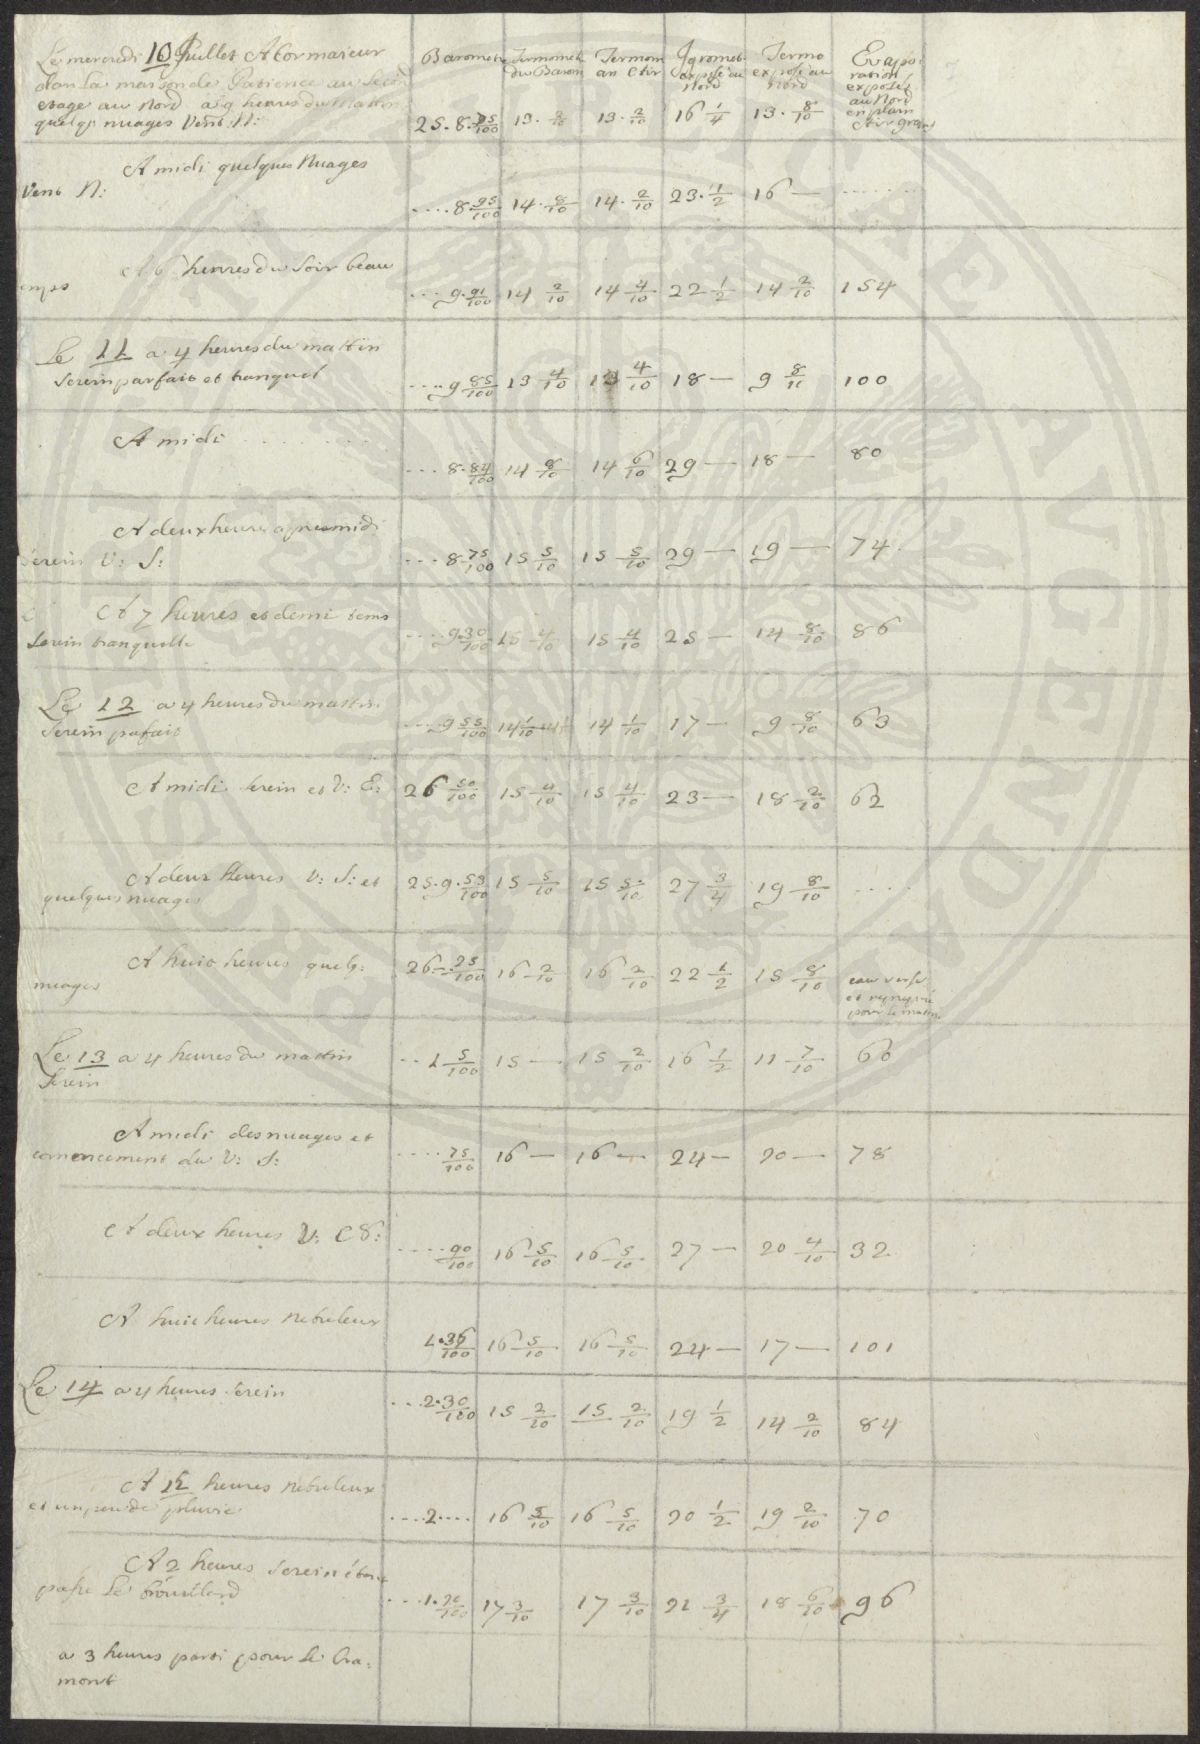 Le mercredi 10 Juillet A Cormaieur
dan La maison de Patience au Second
etage au Nord a 9 heures du Mattin
quelqs nuages Vent N:
Baromete
Termomet
du Barom
Termom
an l'Air
Igromet
exposé au
Nord
Termo
exposé au
Nord
Evapo
ration
exposés
au Nord
en plain
Air grains
25.8.75/100 13.2/10 13.2/10 16 1/4 13.8/10
A midi quelques Nuages
Vent N:
....8.95/100 14.8/10 14.2/10 23.1/2 16 — ........
A 6 heures du Soir beau
emps
...9.91/100 14 2/10 14 4/10 22 1/2 14 2/10 154
Le 11 a 4 heures du mattin
Serein parfait et tranquil
....9 85/100 13 4/10 13 4/10 18 — 9 8/11 100
A midi ........
...8.84/100 14 8/10 14 6/10 29 — 18 — 80
A deux heures apresmidi
Serein V: S:
...8 75/100 15 5/10 15 5/10 29 — 19 — 74
A 7 heures et demi tems
Serein tranquille
....9.30/100 15 4/10 15 4/10 25 — 14 8/10 86
Le 12 a 4 heures du mattin
Serein pafait
....9 55/100 14 1/10 14 1/10 17 — 9 8/10 63
A midi Serein et V: E: 26 50/100 15 4/10 15 4/10 23 — 18 2/10 62
A deux heures V: S: et
quelques nuages
25.9.53/100 15 5/10 15 5/10 27 3/4 19 8/10 ....
A huit heures quelq:
nuages
26 —.25/100 16 2/10 16 2/10 22 1/2 15 8/10
eau versé
et
pour le mattin
Le 13 a 4 heures du mattin
Serein
..1 5/100 15 — 15 2/10 16 1/2 11 7/10 60
A midi des nuages et
comencement du V: S:
....75/100 16 — 16 — 24 — 20 — 78
A deux heures V: E:
....90/100 16 5/10 16 5/10 27 — 20 4/10 32
A huit heures Nebuleux
1.36/100 16 5/10 16 5/10 24 — 17 — 101
Le 14 a 4 heures Serein
...2.30/100 15 2/10 15 2/10 19 1/2 14 2/10 84
A 12 heures Nebuleux
et un peu de pluvie
....2.... 16 5/10 16 5/10 20 1/2 19 2/10 70
A 2 heures Serein étant
passe Le brouillard
...1.20/100 17 3/10 17 3/10 21 3/4 18 6/10 96
a 3 heures parti pour le Cra:
mont